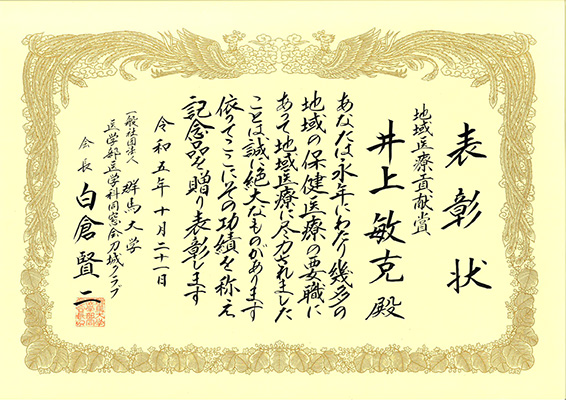 表彰状
地域医療貢献賞
井上敏克殿
あなたは永年にわたり幾多の
地域の保健医療の要職に
あって地域医療に尽力されました
ことは誠に絶大なものがあります
依ってここにその功績を称え
記念品を贈り表彰します
令和五年十月二十一日
一般社団法人 群馬大学
医学部医学科同窓会刀城クラブ
会長 白倉賢二